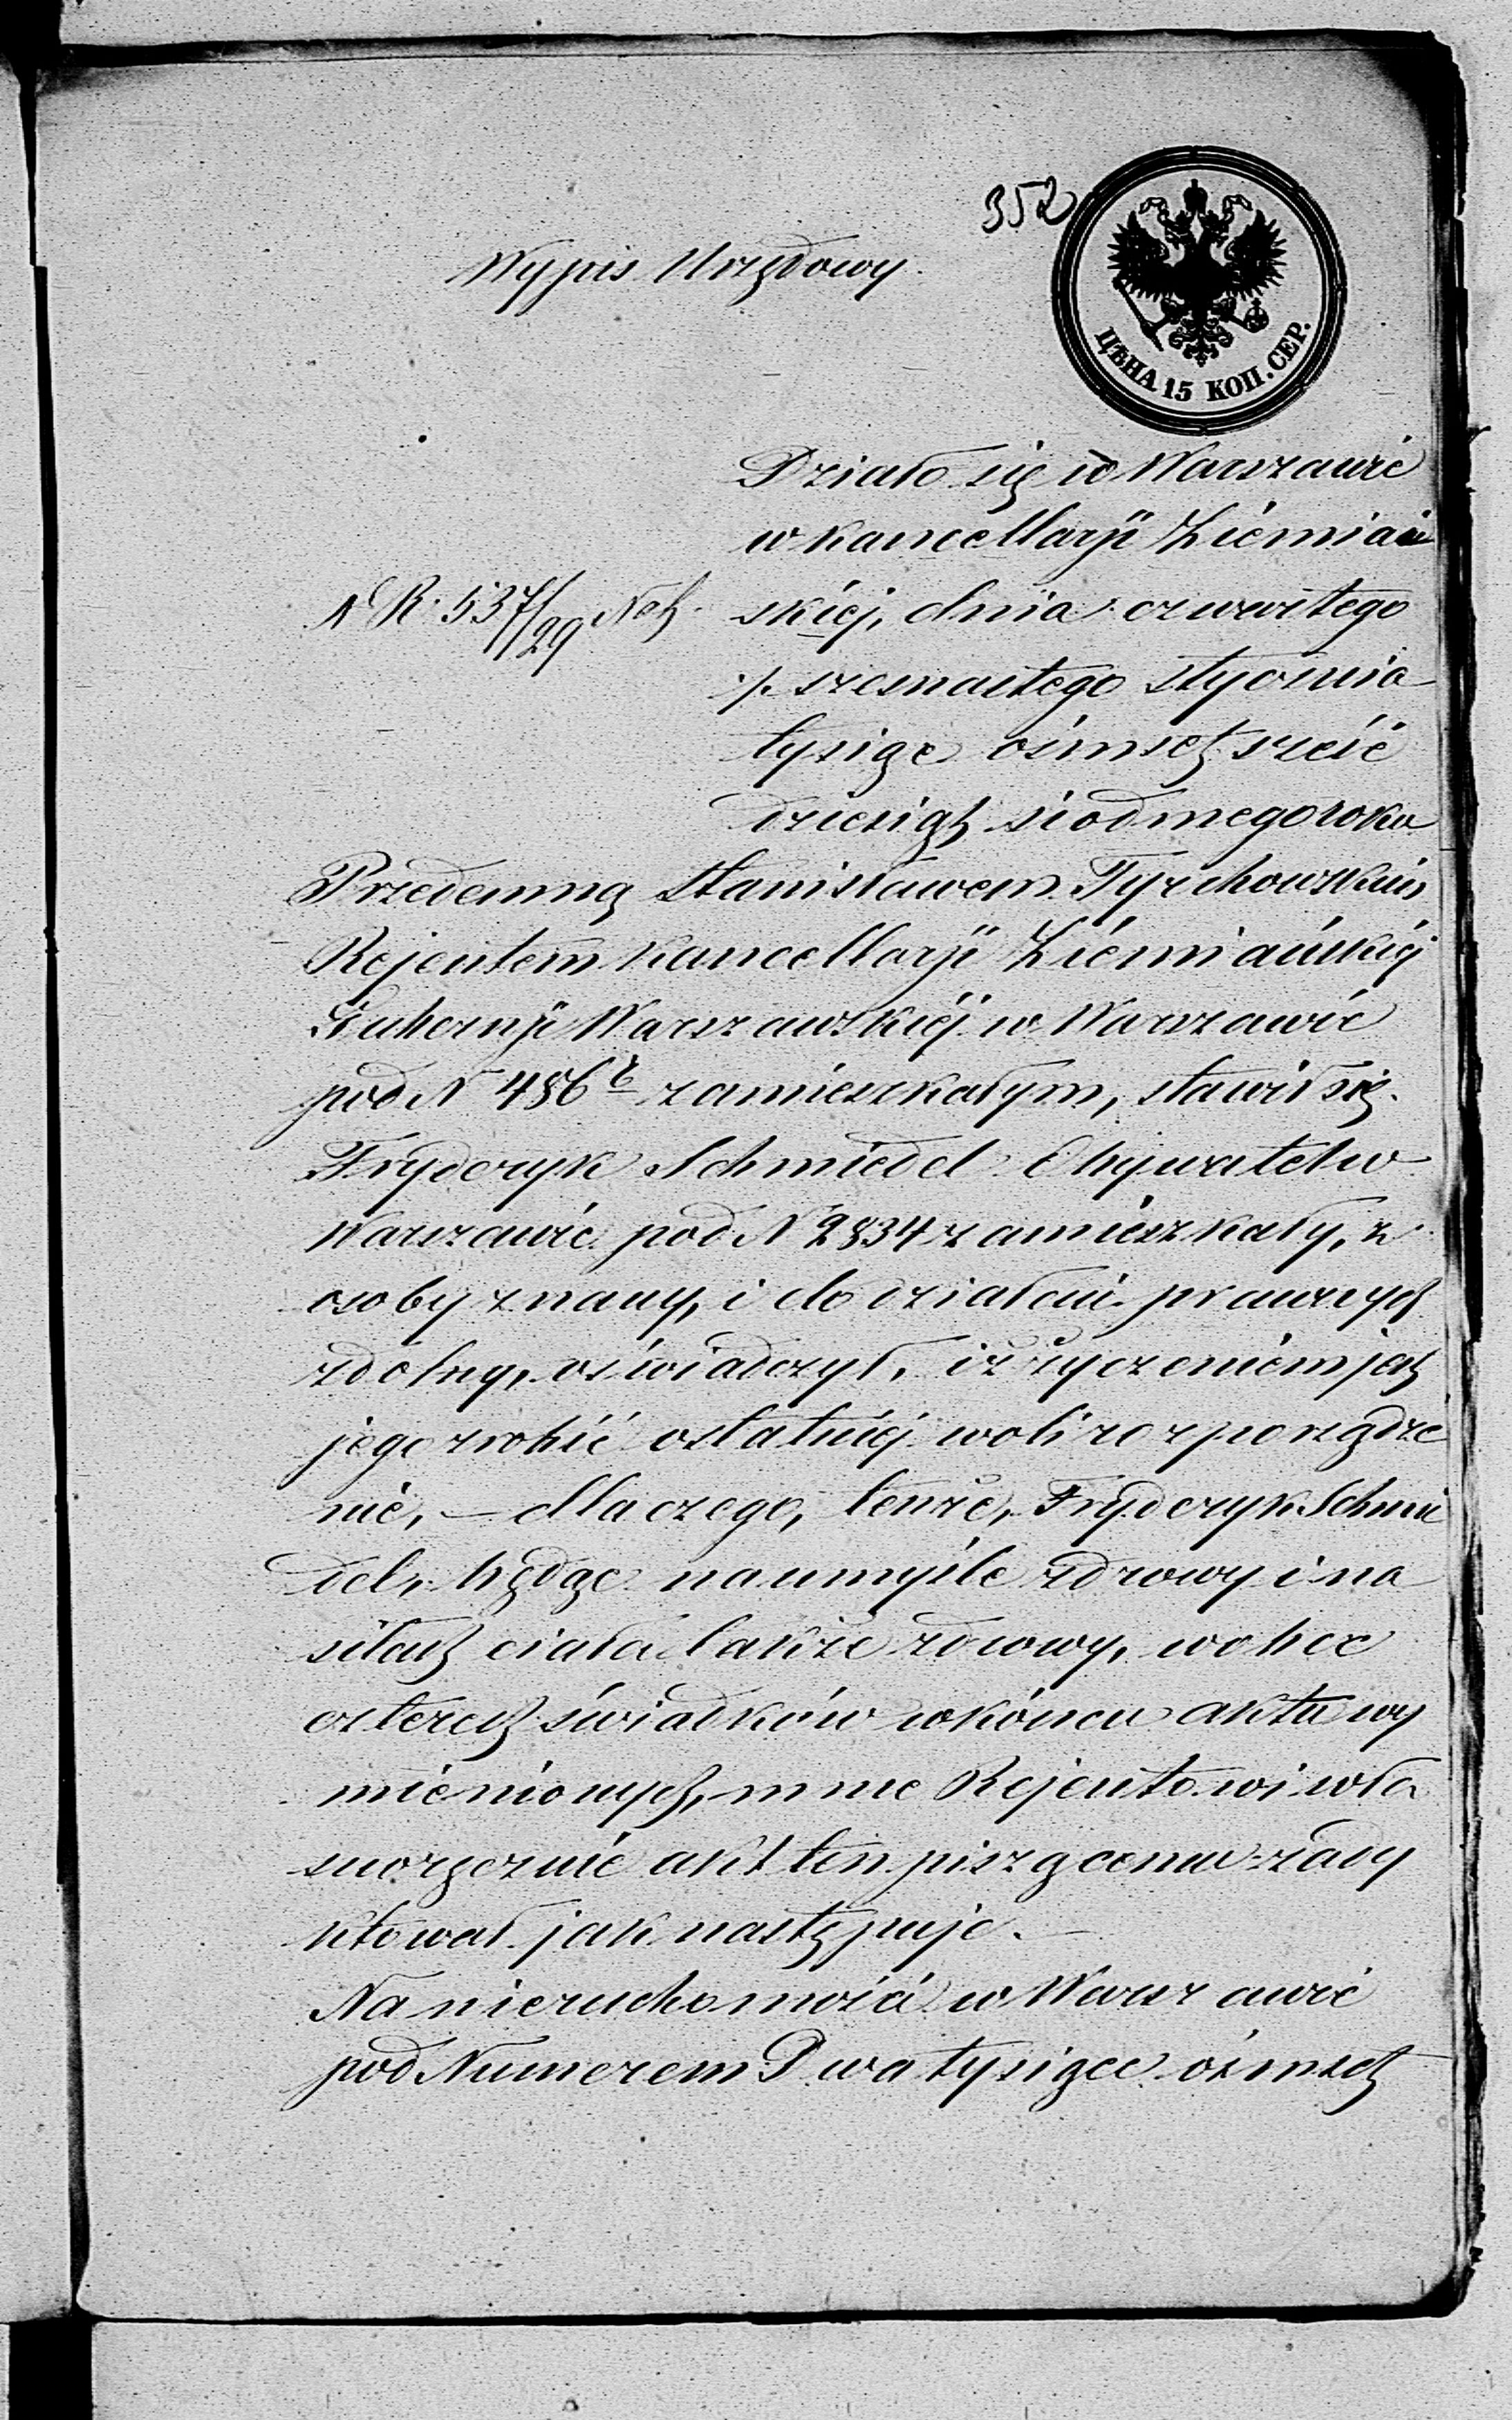 352
Wypis Urzędowy.
ЦѢНА 15 КОП. СЕР.
Działo się w Warszawie
w Kancellaryi Ziemiań
N R. 537/29 Neh. skiéj, dnia czwartego
./. szesnastego stycznia
tysiąc ośmset sześć
dziesiąt siodmego roku
Przedemną Stanisławem Tyrchowskim
Rejentem Kancellaryi Ziemiańskiéj
Gubernji Warszawskiéj w Warszawie
pod N 486 zamieszkałym, stawił się.
Fryderyk Schmiedel Obywatel w
Warszawie pod N 2834 zamieszkały, z
osoby znany, i do działań prawnych
zdolny, oświadczył, iż życzeniem jest
jego zrobić ostatniéj woli rozporządze
nie, – dla czego, tenże, Fryderyk Schmie
del, będąc na umyśle zdrowy i na
siłach ciała także zdrowy, wobec
czterech świadków w końcu aktu wy
mienionych, mnie Rejentowi wła
snoręcznie akt ten piszącemu zady
ktował jak następuje. –
Na nieruchomości w Warszawie
pod Numerem Dwa tysiące ośmset